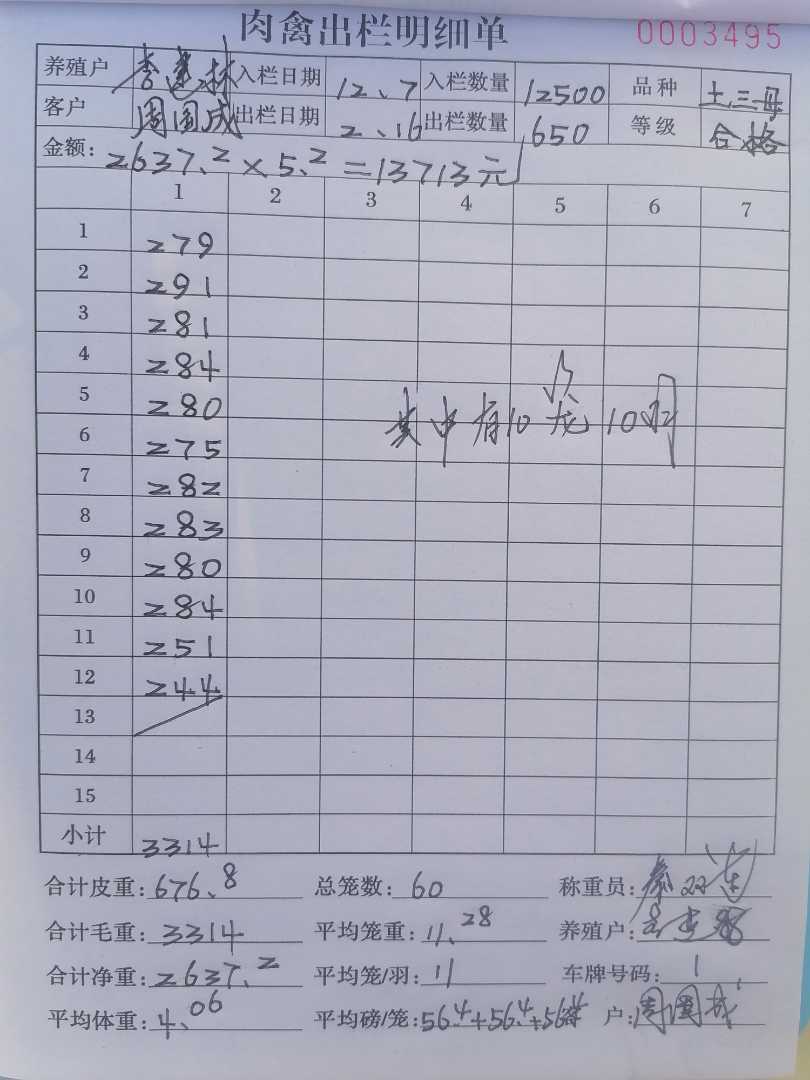 肉禽出栏明细单 0003495
养殖户 李建林 入栏日期 12、7 入栏数量 12500 品种 土三母
客户 周国成 出栏日期 2、16 出栏数量 650 等级 合格
金额: 2637.2 × 5.2 = 13713元
1 2 3 4 5 6 7
1 279
2 291
3 281
4 284
5 280
6 275
7 282
8 283
9 280
10 284
11 251
12 244
13
14
15
其中有10笼10只
小计 3314
合计皮重: 676.8 总笼数: 60 称重员:
合计毛重: 3314 平均笼重: 11.28 养殖户:
合计净重: 2637.2 平均笼/羽: 11 车牌号码: 1
平均体重: 4.06 平均磅/笼: 56.4+56.4+564 户: 周国成